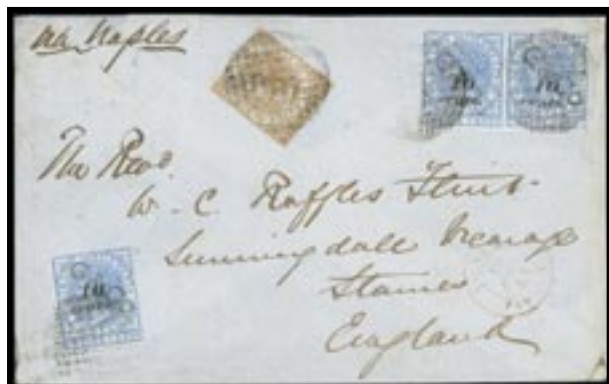 via Naples
10 10
The Revd.
W. C. Raffles Flint
Sunningdale Vicarage
Staines
10
England